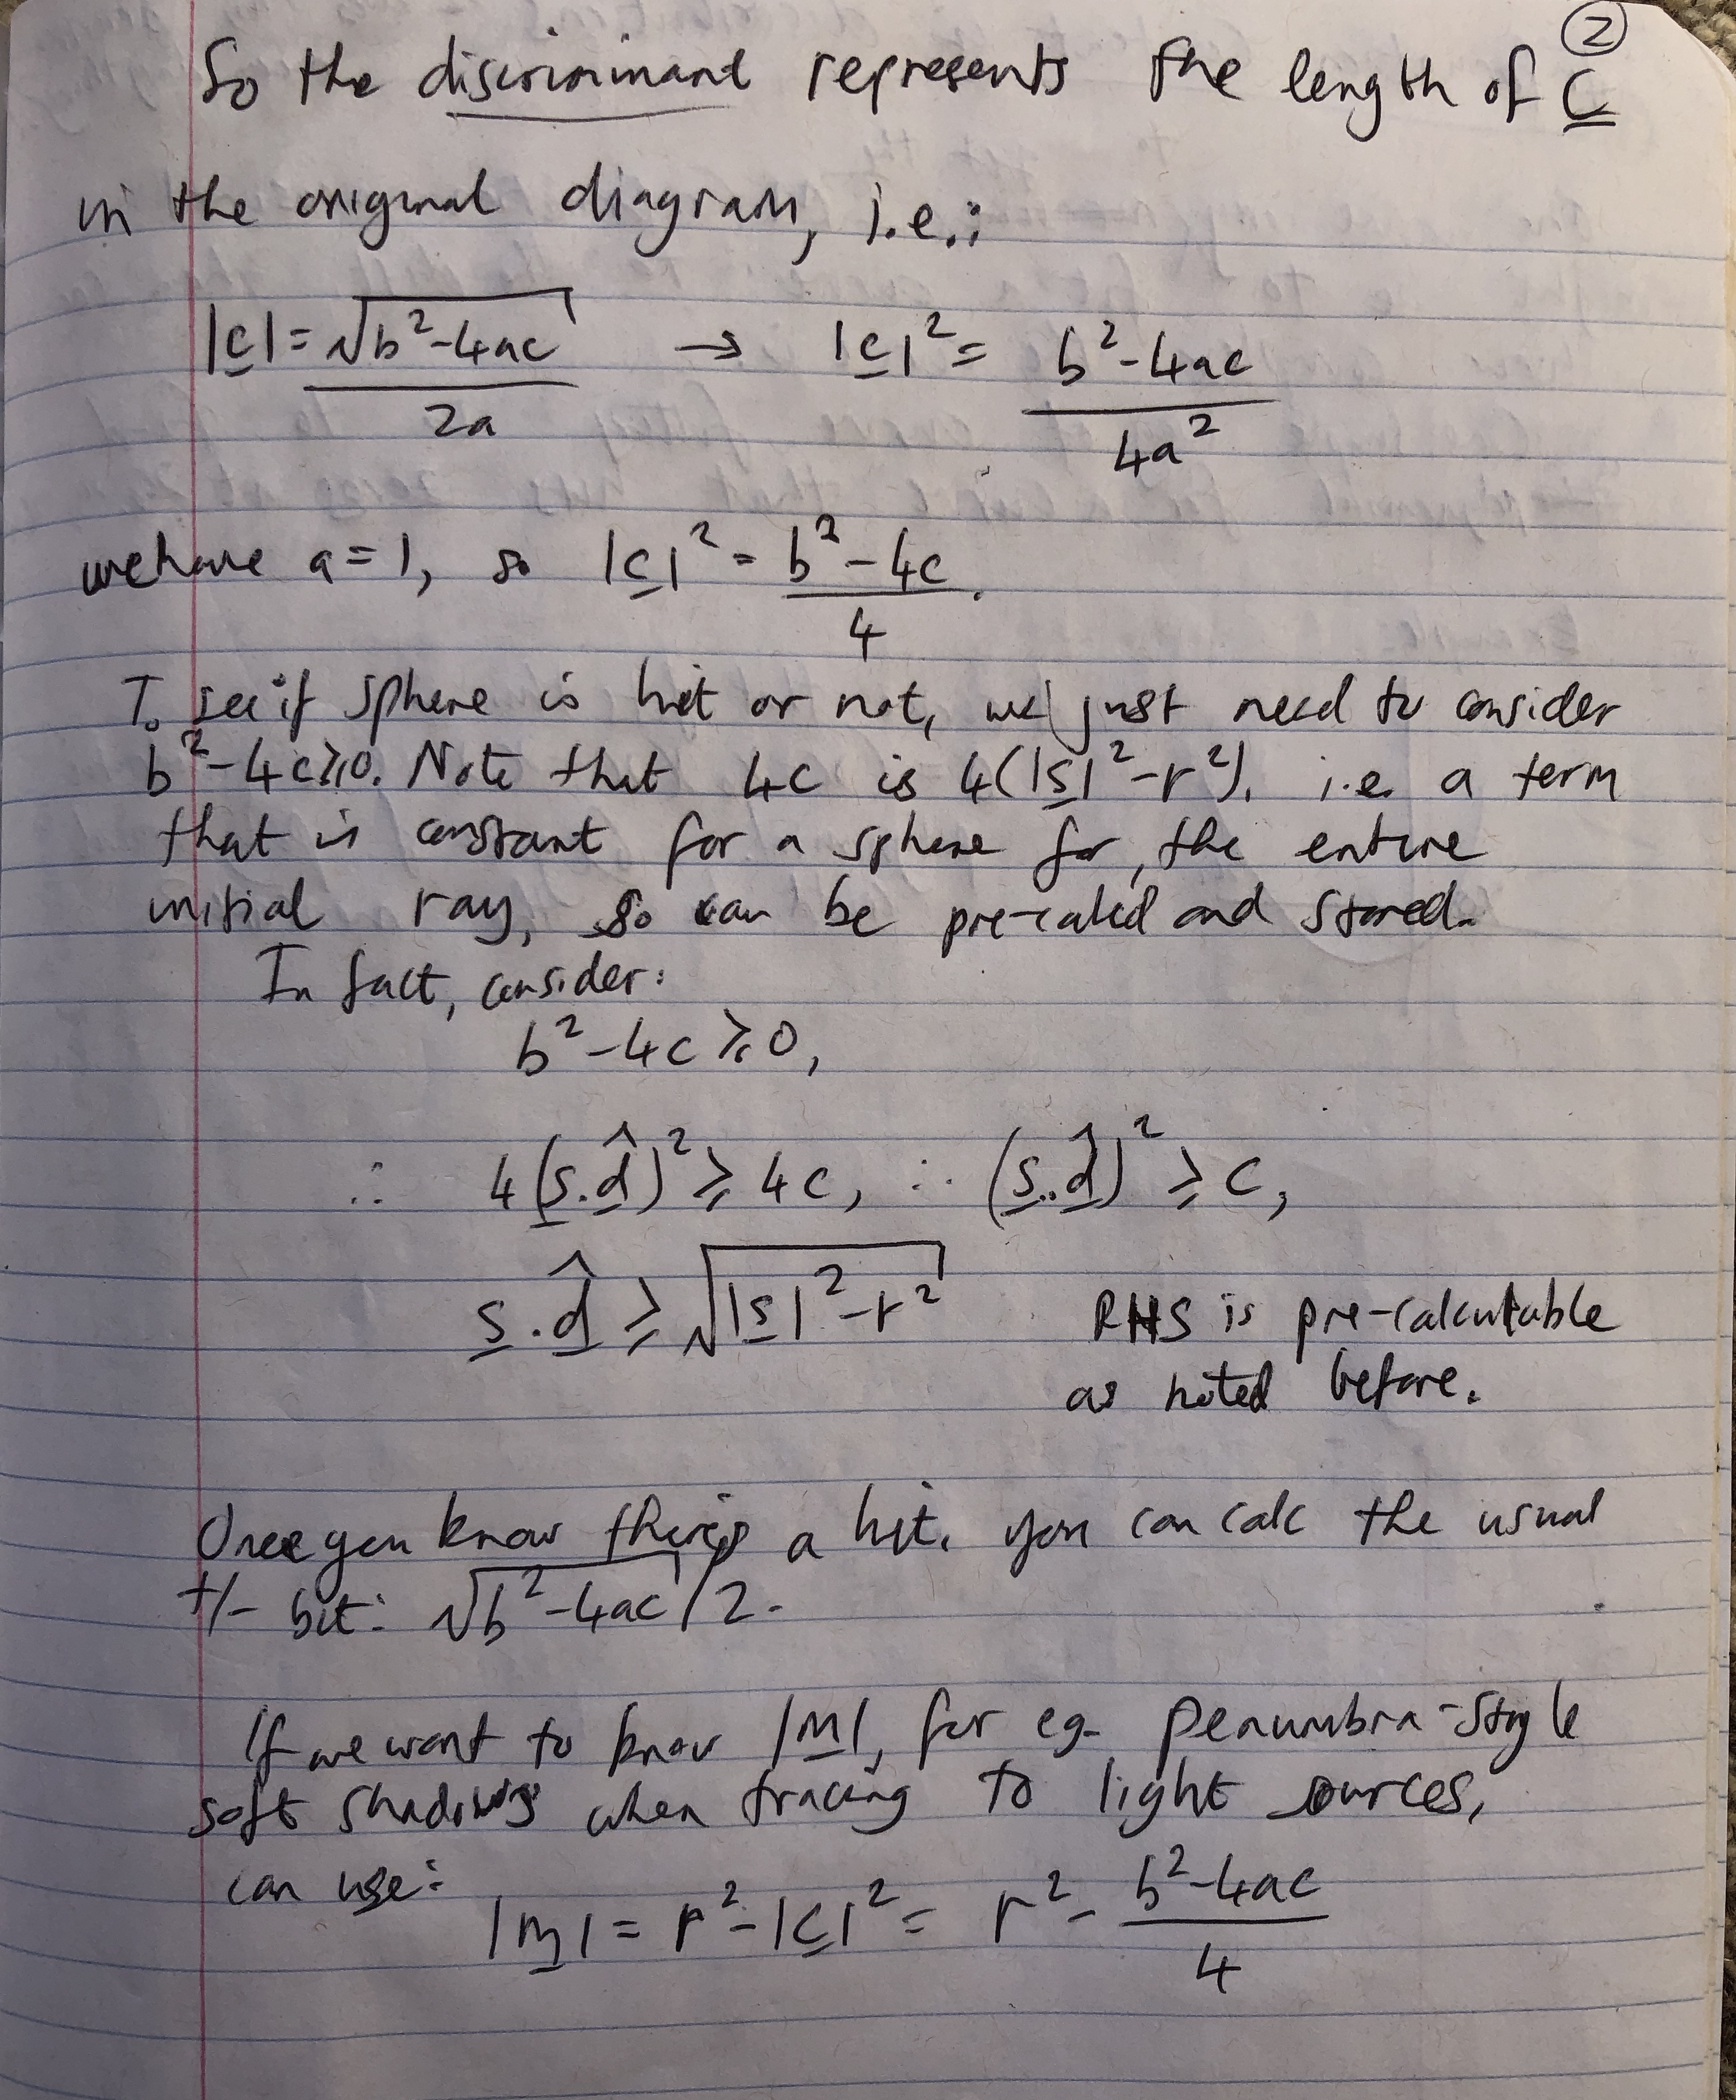 ②
So the discriminant represents the length of c̲
in the original diagram, i.e.:
|c̲| = √(b²-4ac) / 2a → |c̲|² = (b²-4ac) / 4a²
we have a=1, so |c̲|² = (b²-4c) / 4.
To see if sphere is hit or not, we just need to consider
b²-4c⩾0. Note that 4c is 4(|s̲|²-r²), i.e. a term
that is constant for a sphere for, the entire
initial ray, so can be pre-calced and stored.
In fact, consider:
b²-4c ⩾ 0,
∴ 4(s̲.d̲̂)² ⩾ 4c, ∴ (s̲.d̲̂)² ⩾ c,
s̲.d̲̂ ⩾ √(|s̲|²-r²) RHS is pre-calculable
as noted before.
Once you know there's a hit, you can calc the usual
+/- bit: √(b²-4ac) / 2.
If we want to know |m̲|, for eg. penumbra-style
soft shadows when tracing to light sources,
can use:
|m̲| = r²-|c̲|² = r² - (b²-4ac) / 4